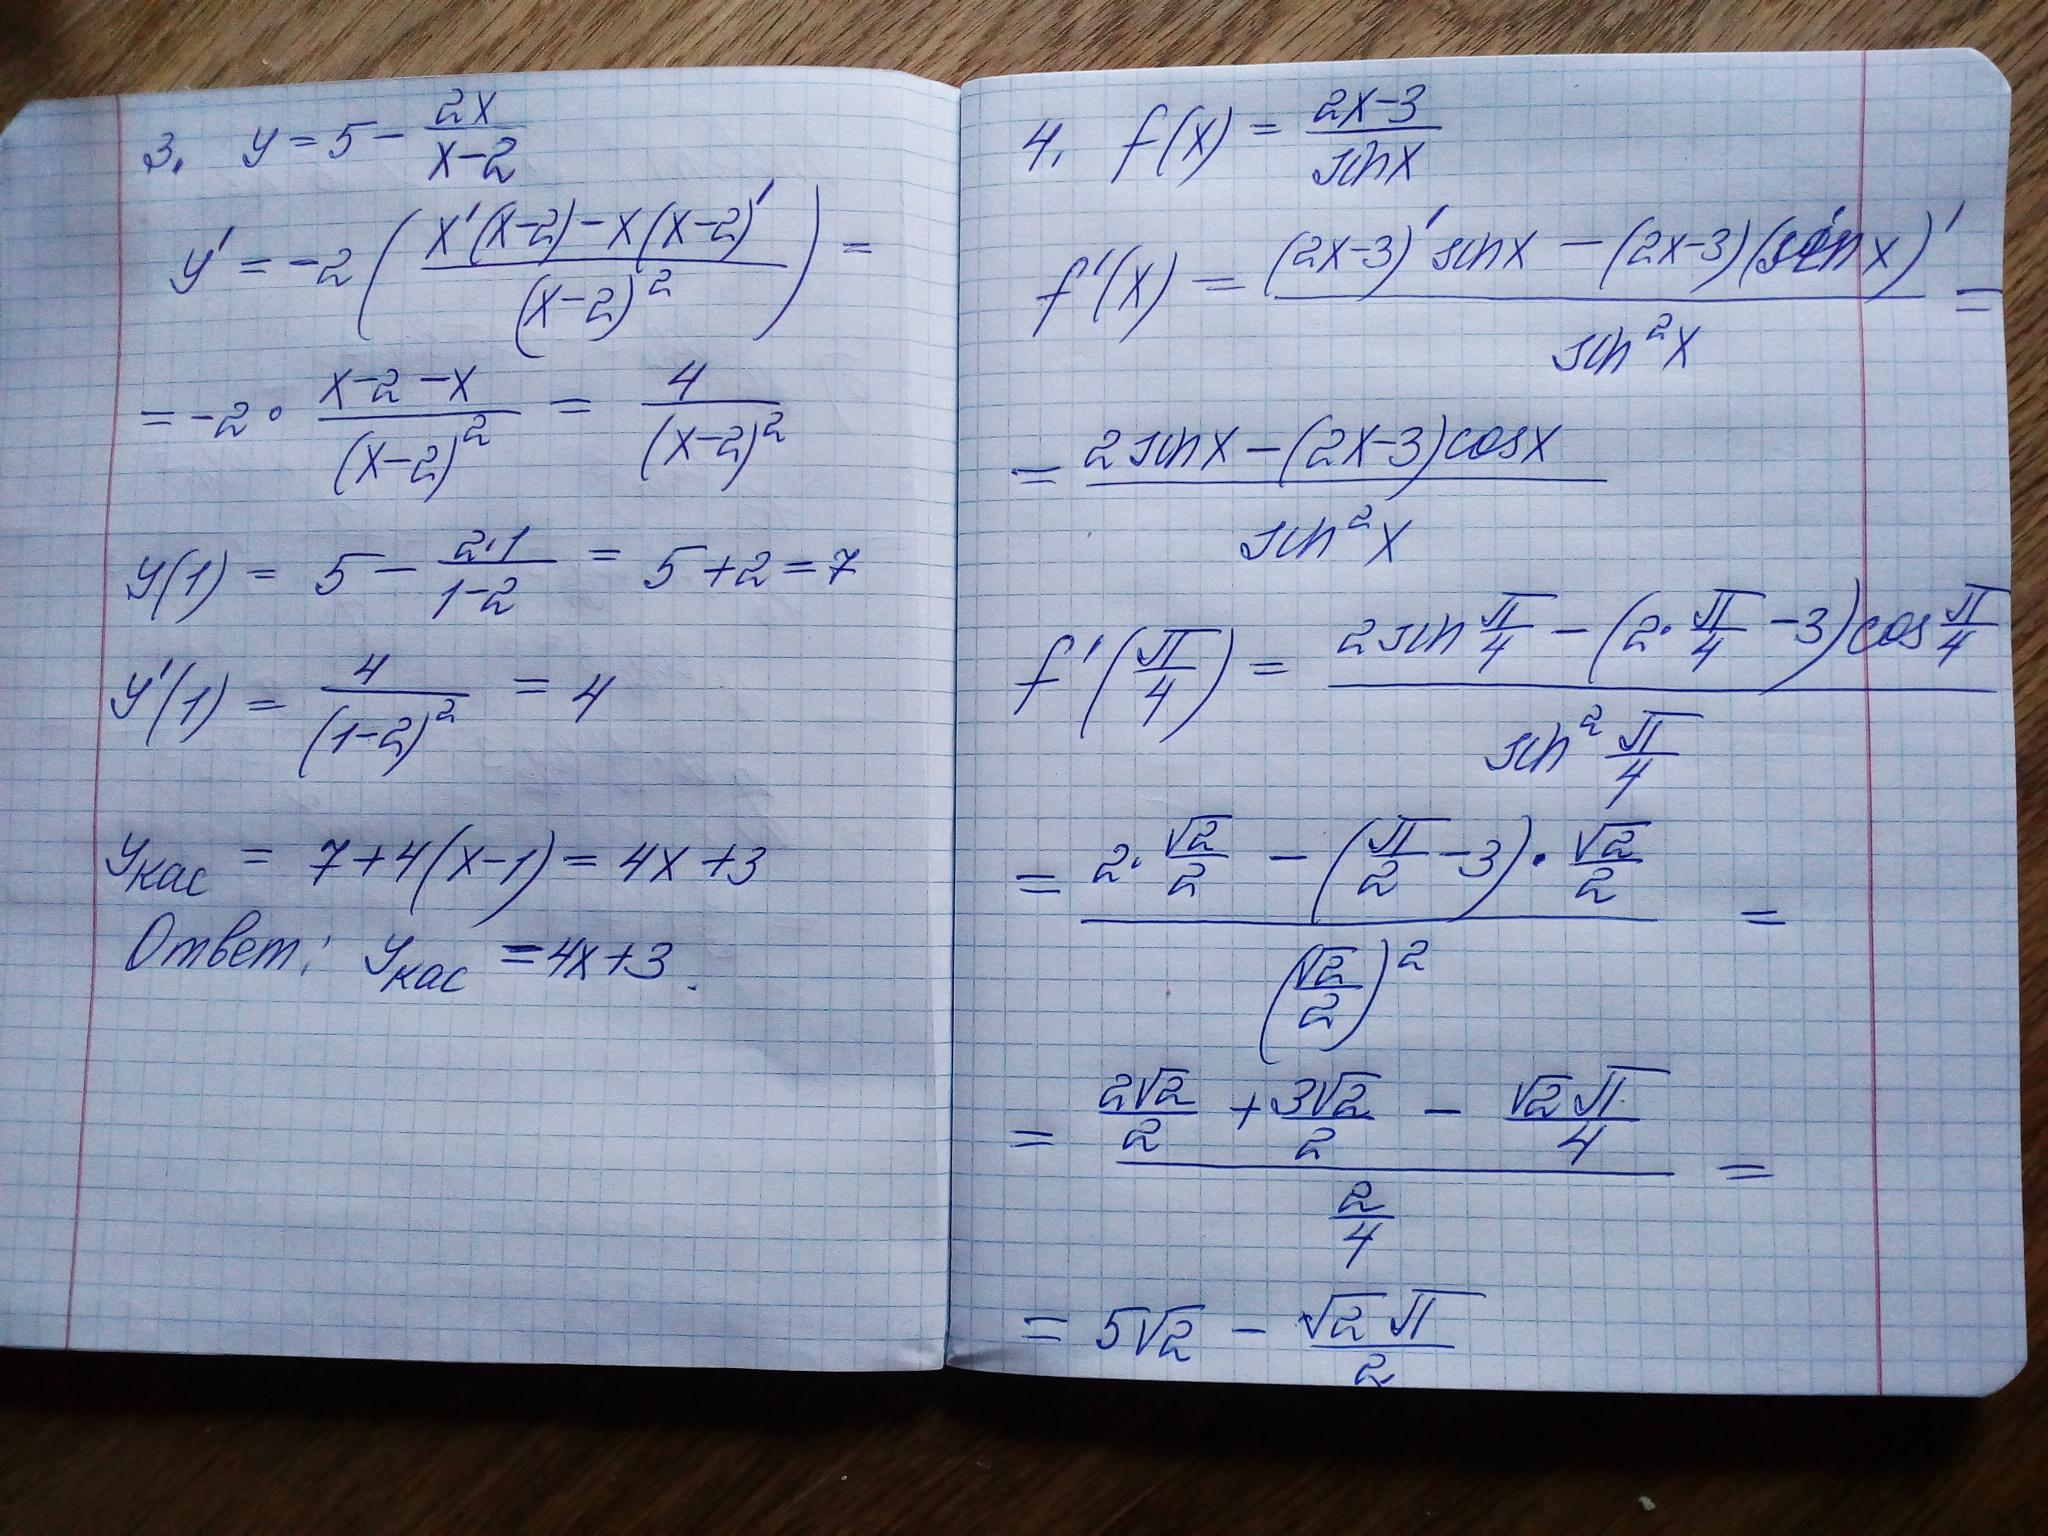 3. y = 5 - 2x/(x-2)
y' = -2 ( (x'(x-2) - x(x-2)')/(x-2)² ) =
= -2 · (x-2-x)/(x-2)² = 4/(x-2)²
y(1) = 5 - (2·1)/(1-2) = 5+2 = 7
y'(1) = 4/(1-2)² = 4
y кас = 7+4(x-1) = 4x+3
Ответ: y кас = 4x+3.
4. f(x) = (2x-3)/sinx
f'(x) = ((2x-3)' sinx - (2x-3)(sinx)')/sin²x =
= (2sinx - (2x-3)cosx)/sin²x
f'(π/4) = (2sin π/4 - (2·π/4 - 3)cos π/4)/sin² π/4
= (2·√2/2 - (π/2 - 3)·√2/2)/(√2/2)² =
= (2√2/2 + 3√2/2 - √2π/4)/(2/4) =
= 5√2 - √2π/2